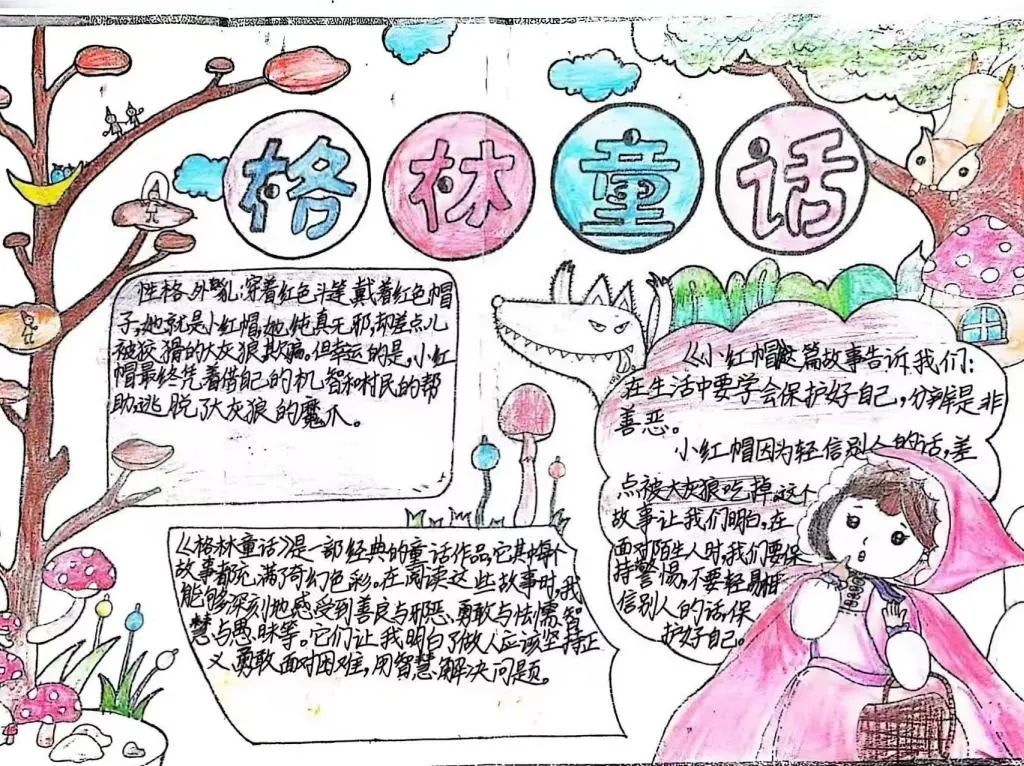 格林童话
性格、外貌:穿着红色斗篷,戴着红色帽
子,她就是小红帽,她纯真无邪,却差点儿
被狡猾的大灰狼欺骗。但幸运的是,小红
帽最终凭着借自己的机智和村民的帮
助,逃脱了大灰狼的魔爪。
《小红帽》这篇故事告诉我们:
在生活中要学会保护好自己,分辨是非
善恶。
小红帽因为轻信别人的话,差
点被大灰狼吃掉。这个
故事让我们明白,在
面对陌生人时,我们要保
持警惕,不要轻易相
信别人的话,保
护好自己。
《格林童话》是一部经典的童话作品,它其中每个
故事都充满了奇幻色彩。在阅读这些故事时,我
能够深刻地感受到善良与邪恶、勇敢与怯懦、智
慧与愚昧等。它们让我明白了做人应该坚持正
义,勇敢面对困难,用智慧解决问题。